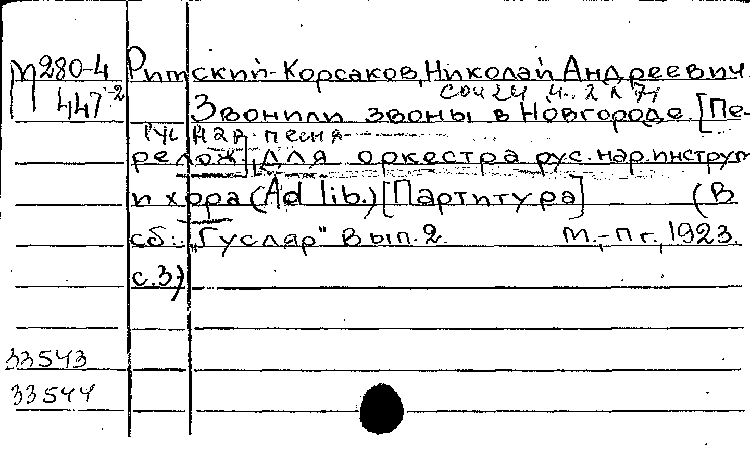 М 280-4
447-2
Римский-Корсаков, Николай Андреевич.
соч 24 ч. 2 № 71
Звонили звоны в Новгороде. [Пе-
рус нар. песня
релож.] для оркестра рус. нар. инструм
и хора (Ad lib.) [Партитура] (В
сб: „Гусляр" Вып. 2. М.-Пг., 1923.
с. 3)
33543
33544